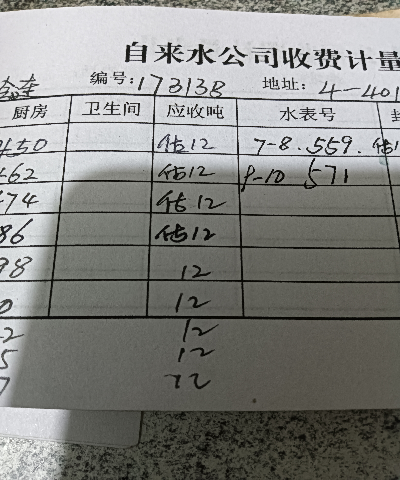 自来水公司收费计量
编号:17313B 地址:4-401
厨房 卫生间 应收吨 水表号
450 估12 7-8.559.估1
462 估12 9-10 571
474 估12
486 估12
98 12
0 12
2 12
5 12
7 12